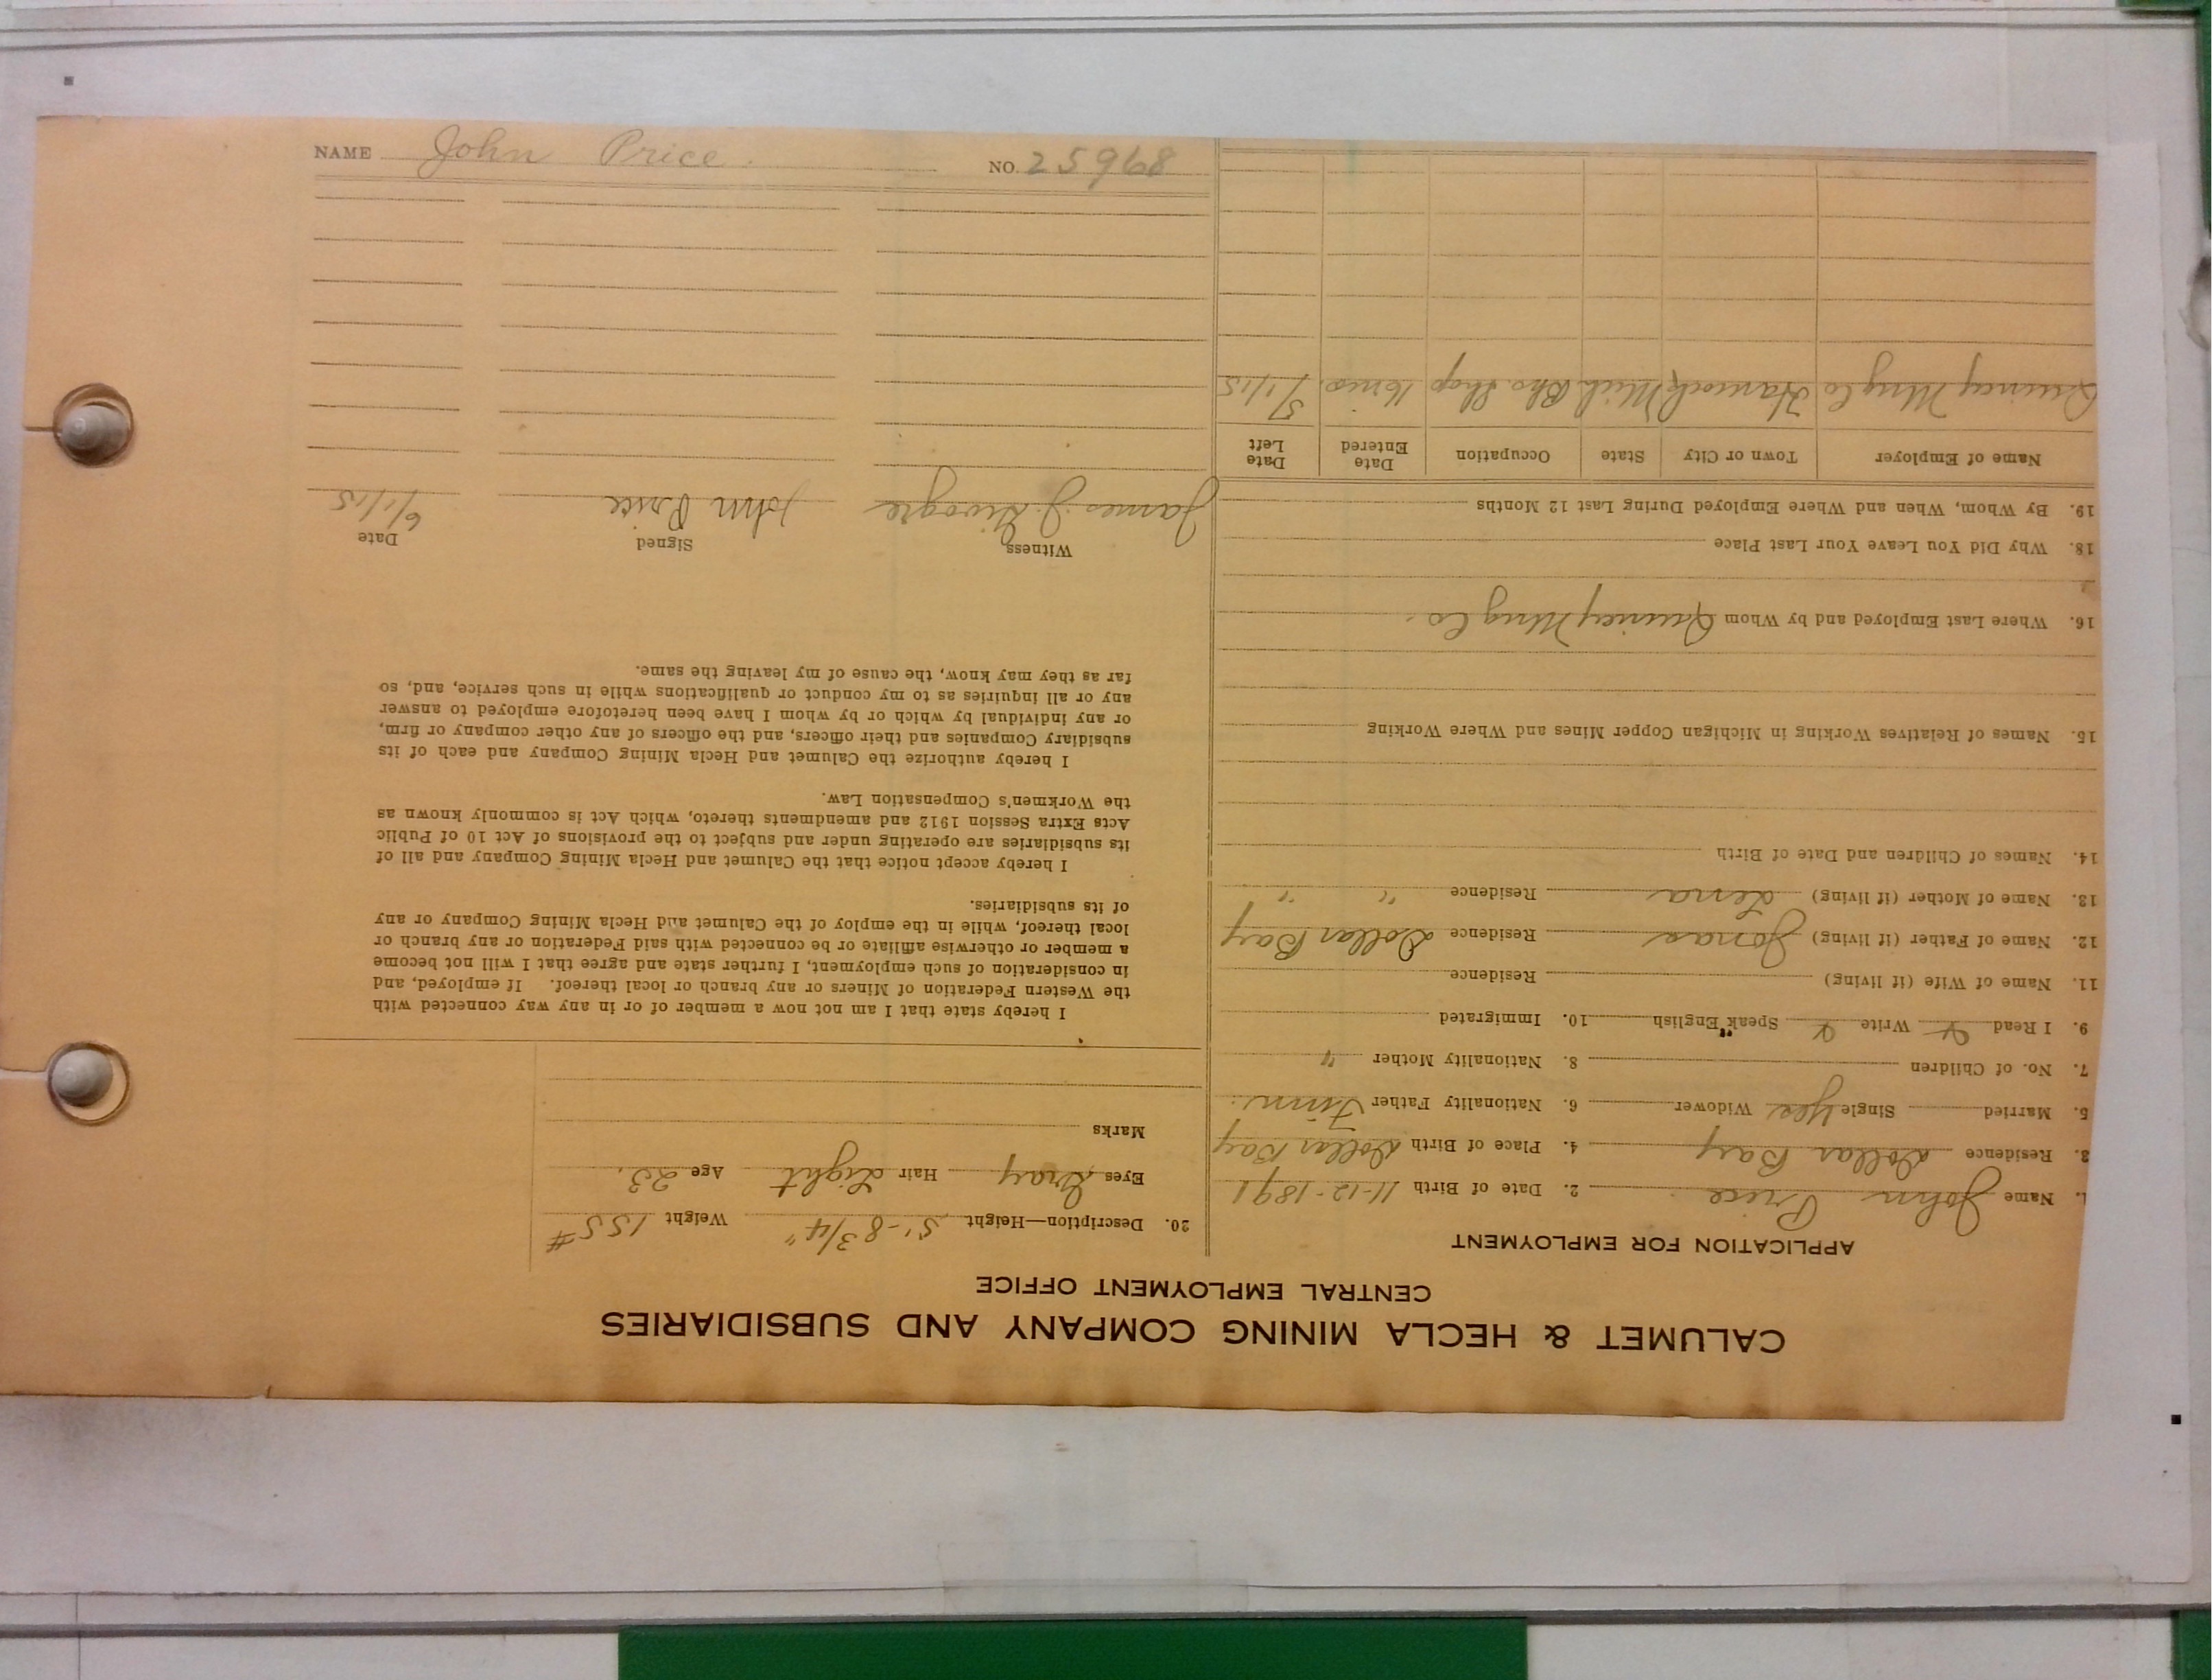 CALUMET & HECLA MINING COMPANY AND SUBSIDIARIES
CENTRAL EMPLOYMENT OFFICE
APPLICATION FOR EMPLOYMENT
1. Name John Price 2. Date of Birth 11-12-1891
3. Residence Dollar Bay 4. Place of Birth Dollar Bay
5. Married Single Yes Widower 6. Nationality Father Finn.
7. No. of Children 8. Nationality Mother "
9. I Read Write Speak English 10. Immigrated
11. Name of Wife (if living) Residence
12. Name of Father (if living) Jonas Residence Dollar Bay
13. Name of Mother (if living) Lena Residence " "
14. Names of Children and Date of Birth
15. Names of Relatives Working in Michigan Copper Mines and Where Working
16. Where Last Employed and by Whom Quincy Mng Co.
18. Why Did You Leave Your Last Place
19. By Whom, When and Where Employed During Last 12 Months
Name of Employer Town or City State Occupation Date Entered Date Left
Quincy Mng Co Hancock Mich Shop 5/1/15
20. Description—Height 5'-8 3/4" Weight 155#
Eyes Gray Hair Light Age 23.
Marks
I hereby state that I am not now a member of or in any way connected with
the Western Federation of Miners or any branch or local thereof. If employed, and
in consideration of such employment, I further state and agree that I will not become
a member or otherwise affiliate or be connected with said Federation or any branch or
local thereof, while in the employ of the Calumet and Hecla Mining Company or any
of its subsidiaries.
I hereby accept notice that the Calumet and Hecla Mining Company and all of
its subsidiaries are operating under and subject to the provisions of Act 10 of Public
Acts Extra Session 1912 and amendments thereto, which Act is commonly known as
the Workmen's Compensation Law.
I hereby authorize the Calumet and Hecla Mining Company and each of its
subsidiary Companies and their officers, and the officers of any other company or firm,
or any individual by which or by whom I have been heretofore employed to answer
any or all inquiries as to my conduct or qualifications while in such service, and, so
far as they may know, the cause of my leaving the same.
Witness Signed Date
James J. John Price 6/1/15
NAME John Price. NO. 25968